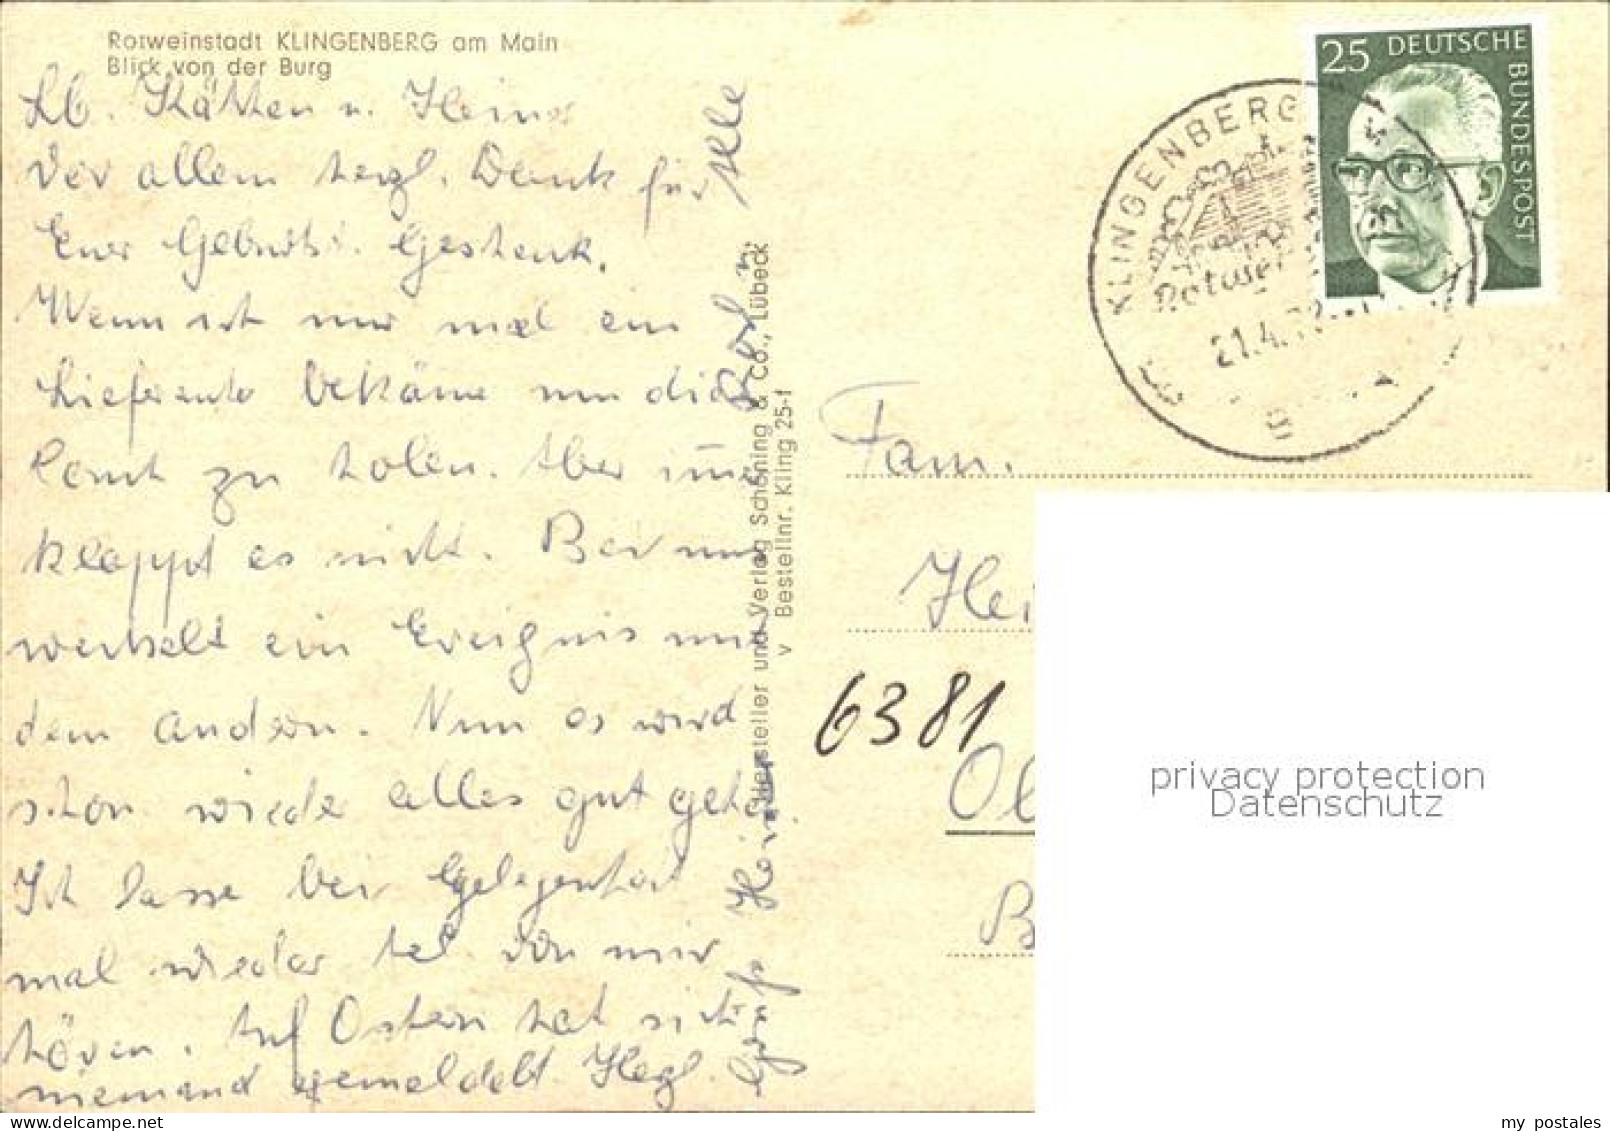 Rotweinstadt KLINGENBERG am Main
Blick von der Burg
Lb. Käthen u. Heiner
Vor allem herzl. Dank für
Euer Geburtst. Geschenk.
Wenn ich nur mal ein
Lieferauto bekäme um die
zu holen. Aber immer
klappt es nicht. Bei uns
wechselt ein Ereignis mit
dem andern. Nun es wird
schon wieder alles gut gehen.
Ich lasse bei Gelegenheit
mal wieder tel. von mir
hören. Auf Ostern hat sich
niemand gemeldet. Hzgl.
Hersteller und Verlag Schöning & Co., Lübeck
v Bestellnr. Kling 25-1
25 DEUTSCHE BUNDESPOST
KLINGENBERG
21.4.
Fam.
Hei
6381
Ol
B
privacy protection
Datenschutz
my postales